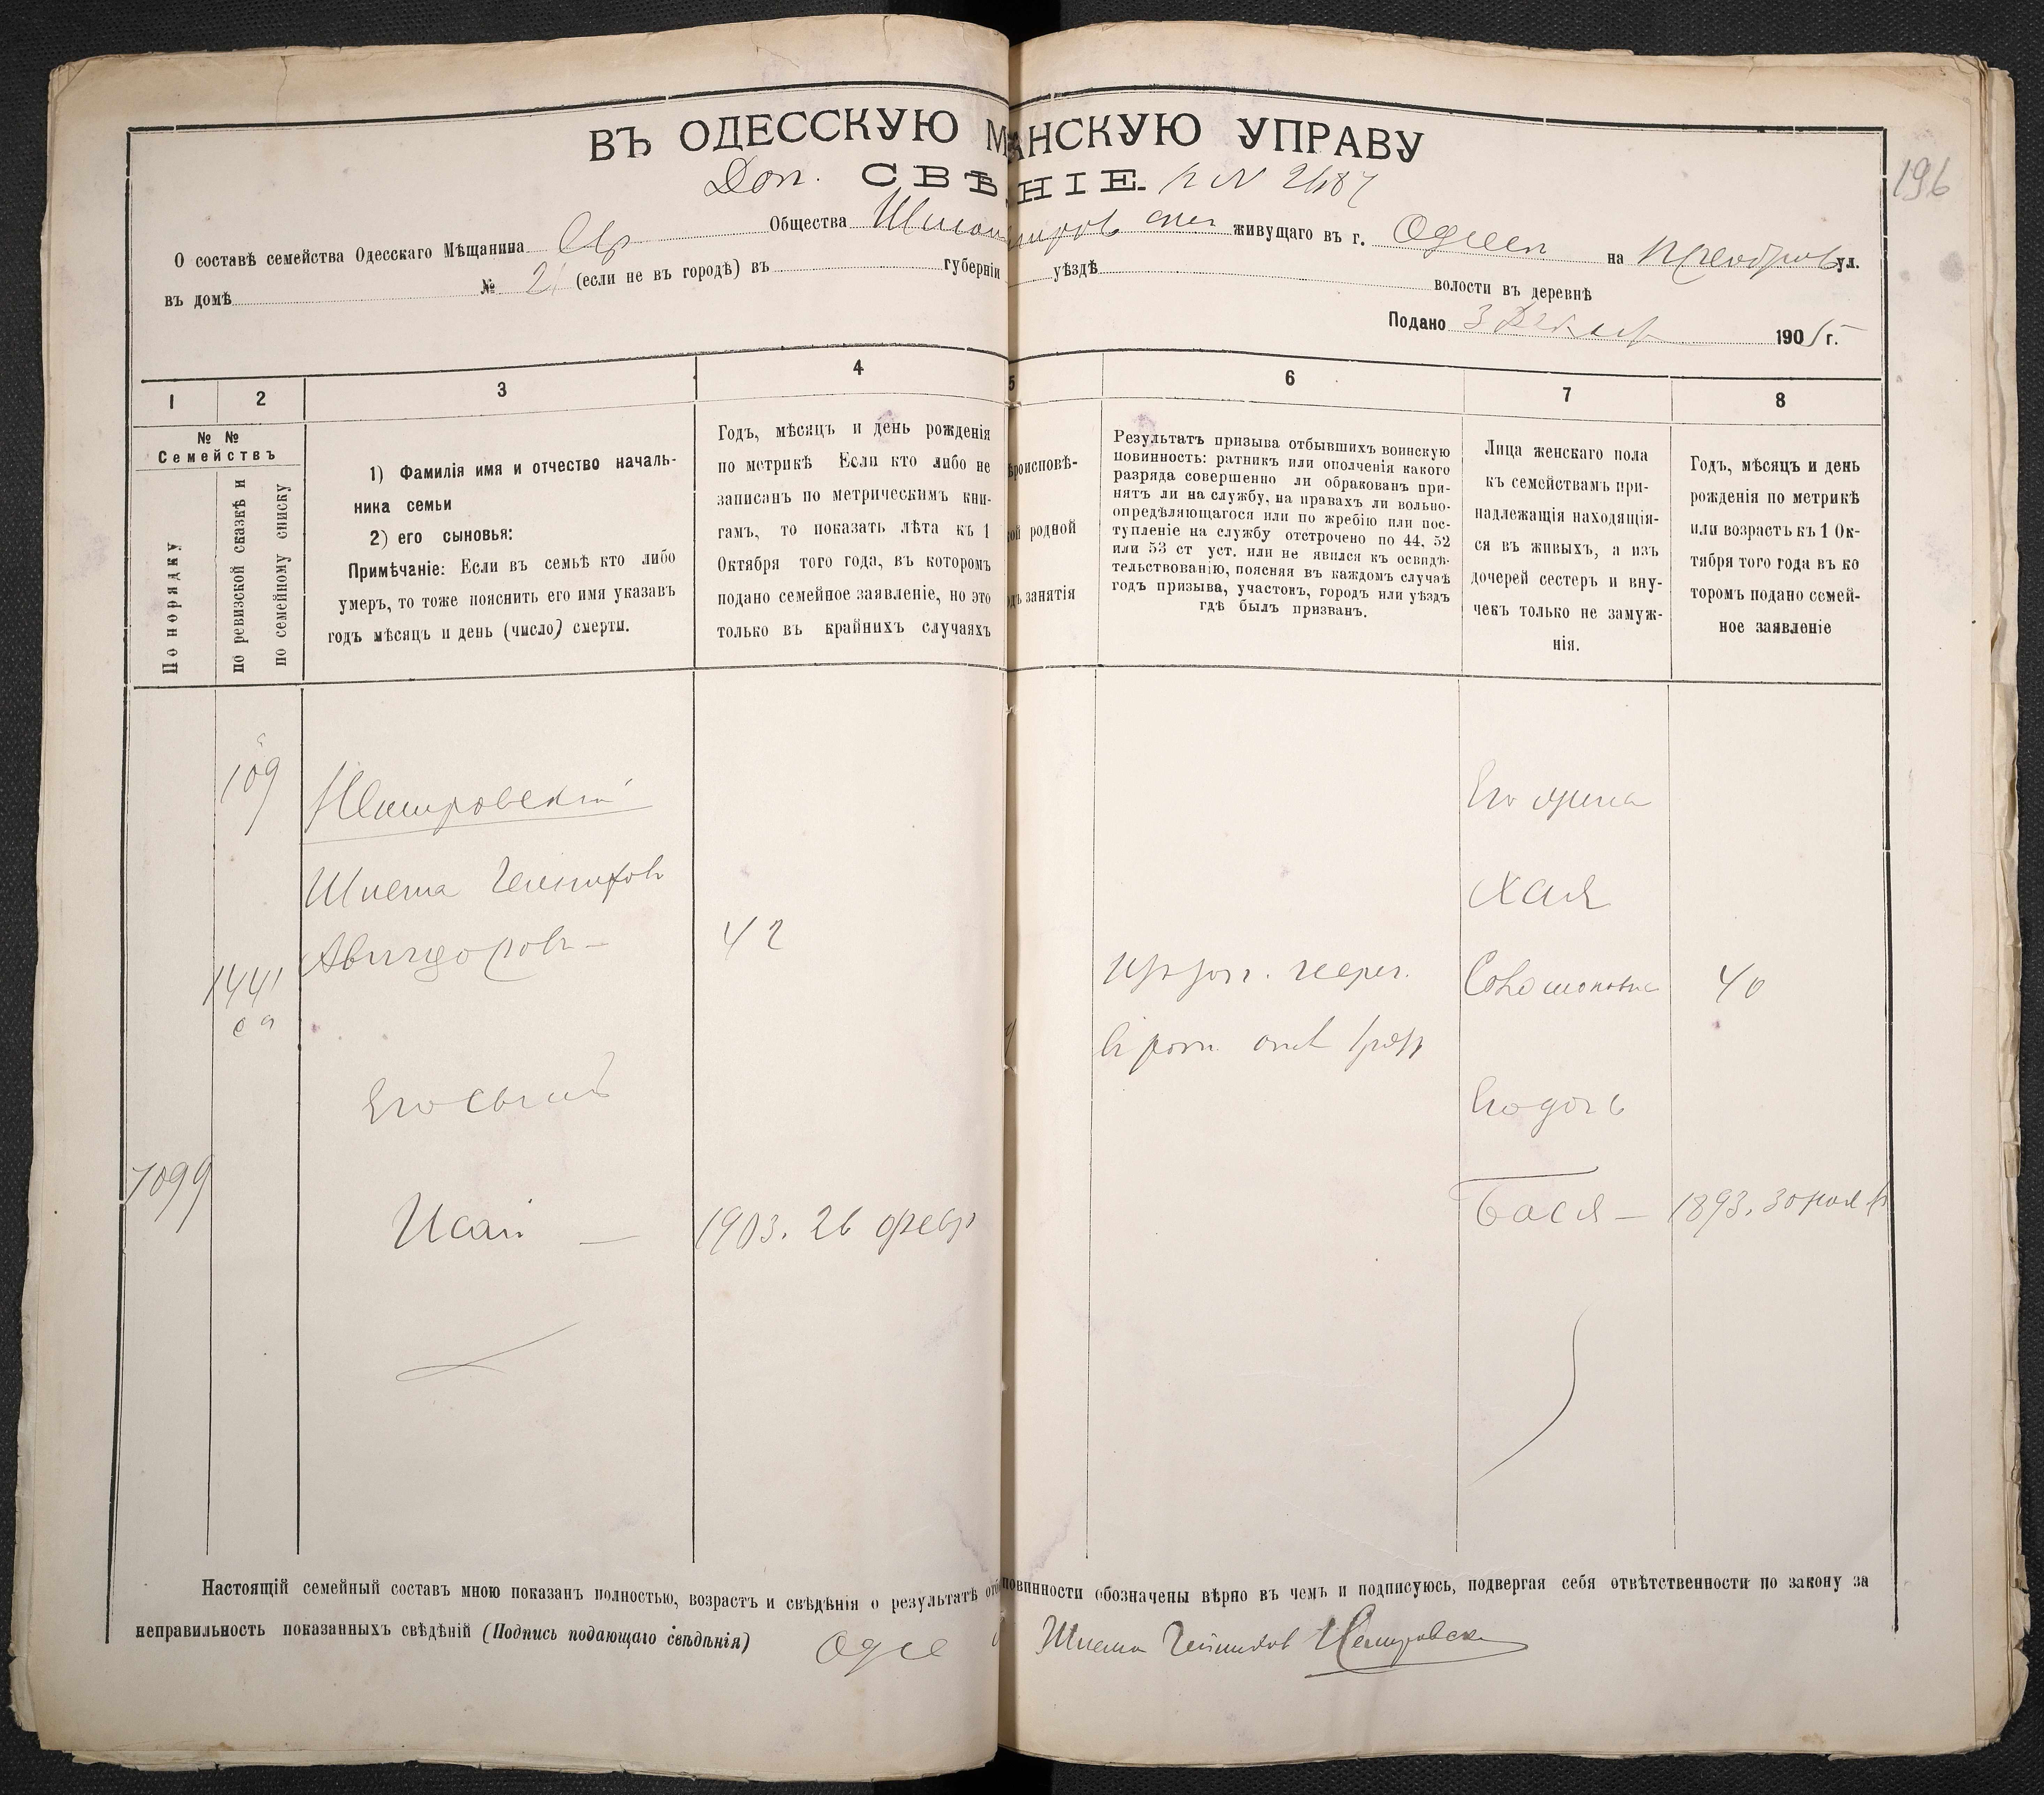 ВЪ ОДЕССКУЮ М АНСКУЮ УПРАВУ
Доп. СВѢ НІЕ. к № 2487
196
О составѣ семейства Одесскаго Мѣщанина Евр Общества живущаго въ г. Одессѣ на ул.
въ домѣ № 21 (если не въ городѣ) въ губерніи уѣздѣ волости въ деревнѣ
Подано 3 1905 г.
1 2 3 4 5 6 7 8
№ №
Семействъ
По порядку
по ревизской сказкѣ и
по семейному списку
1) Фамилія имя и отчество началь-
ника семьи
2) его сыновья:
Примѣчаніе: Если въ семьѣ кто либо
умеръ, то тоже пояснить его имя указавъ
годъ мѣсяцъ и день (число) смерти.
Годъ, мѣсяцъ и день рожденія
по метрикѣ Если кто либо не
записанъ по метрическимъ кни-
гамъ, то показать лѣта къ 1
Октября того года, въ которомъ
подано семейное заявленіе, но это
только въ крайнихъ случаяхъ
ѣроисповѣ-
кой родной
одъ занятія
Результатъ призыва отбывшихъ воинскую
повинность: ратникъ или ополченія какого
разряда совершенно ли обракованъ при-
нятъ ли на службу, на правахъ ли вольно-
опредѣляющагося или по жребію или пос-
тупленіе на службу отстрочено по 44, 52
или 53 ст уст. или не явился къ освидѣ-
тельствованію, поясняя въ каждомъ случаѣ
годъ призыва, участокъ, городъ или уѣздъ
гдѣ былъ призванъ.
Лица женскаго пола
къ семействамъ при-
надлежащія находящія-
ся въ живыхъ, а изъ
дочерей сестеръ и вну-
чекъ только не замуж-
нія.
Годъ, мѣсяцъ и день
рожденія по метрикѣ
или возрастъ къ 1 Ок-
тября того года въ ко
торомъ подано семей-
ное заявленіе
109 Немировскій Его жена
Шлема Хая
42
1441 Соломоновна 40
Его сынъ Его дочь
1099 Исай — 1903. 26 февр Бася — 1893. 30
Настоящій семейный составъ мною показанъ полностью, возрастъ и свѣдѣнія о результатѣ отб повинности обозначены вѣрно въ чемъ и подписуюсь, подвергая себя отвѣтственности по закону за
неправильность показанныхъ свѣдѣній (Подпись подающаго свѣдѣнія) Шлема Немировск